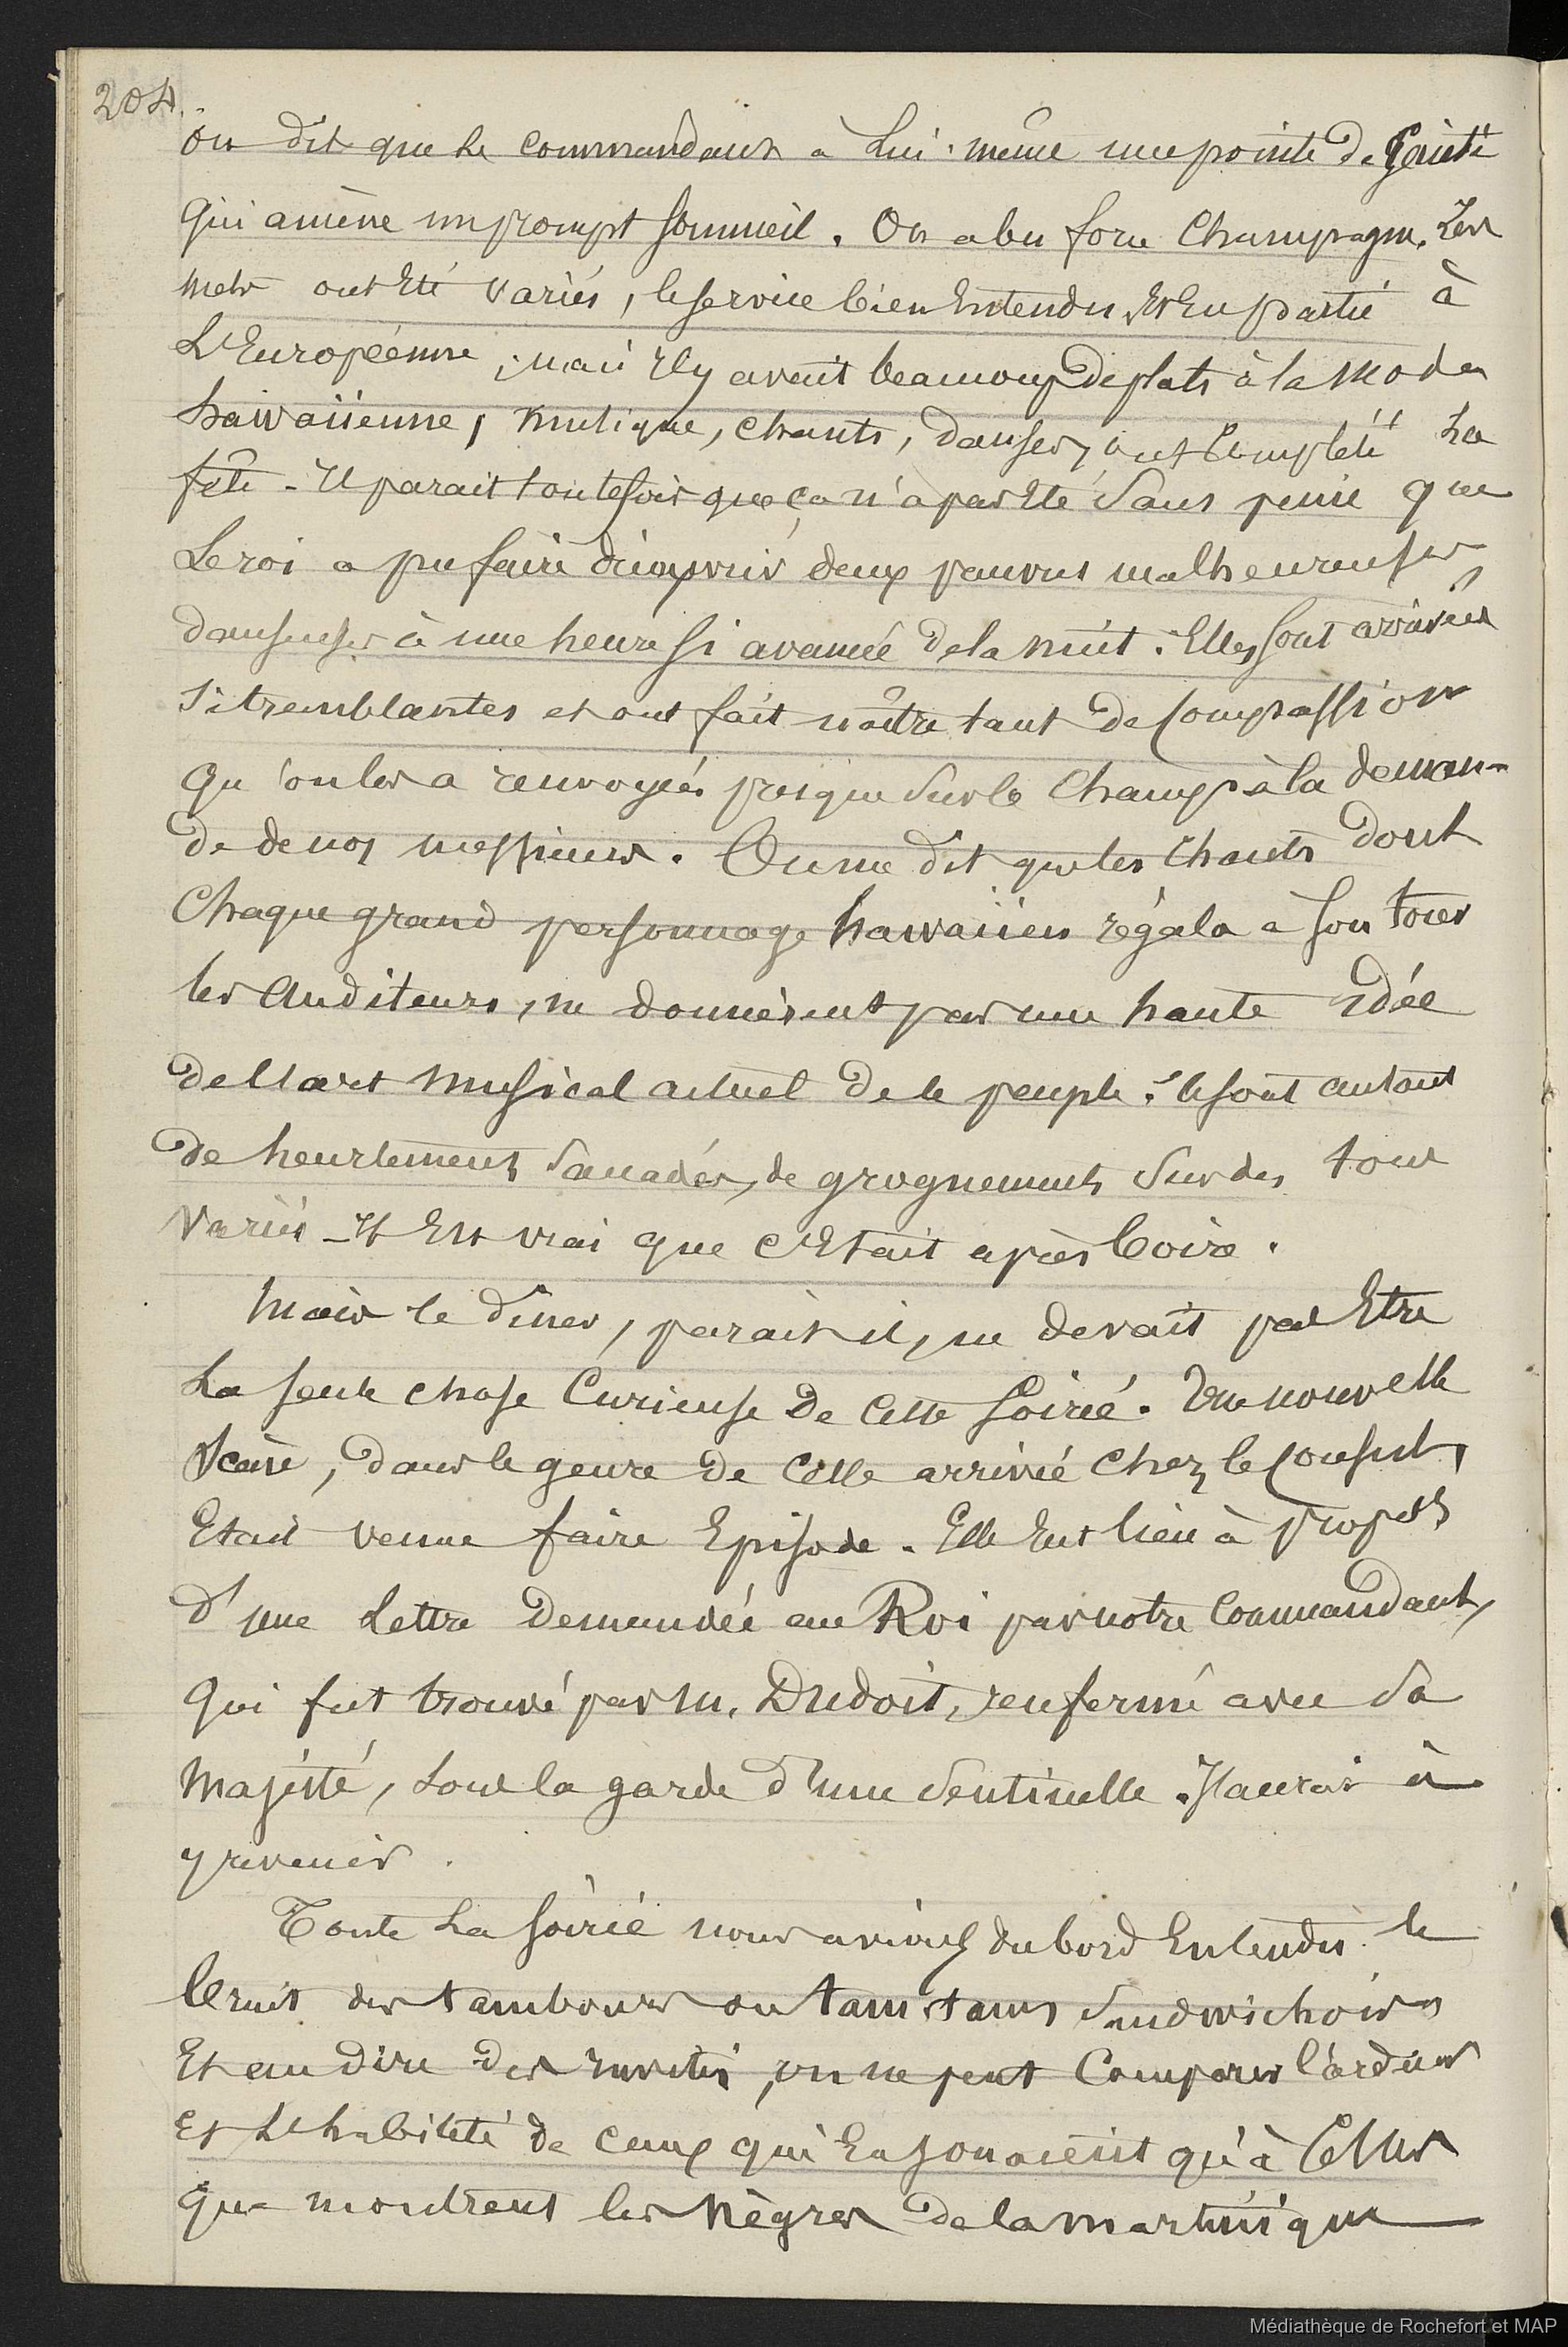 204.
on dit que le commandant a lui-même une pointe de gaieté
qui amène un prompt sommeil. On a bu force champagne. Les
mets ont été variés, le service bien entendu et en partie à
l'Européenne ; mais il y avait beaucoup de plats à la mode
hawaiienne ; musique, chants, danses, ont complété la
fête - Il parait toutefois que ça n'a pas été sans peine que
le roi a pu faire découvrir deux pauvres malheureuses
danseuses à une heure si avancée de la nuit. Elles sont arrivées
si tremblantes et ont fait naître tant de compassion
qu'on les a renvoyées presque sur le champ à la deman-
de de nos messieurs. On me dit que les chants dont
chaque grand personnage hawaiien régala à son tour
les auditeurs, ne donnèrent pas une haute idée
de l'art musical actuel de ce peuple. Ce sont autant
de heurlements saccadés, de grognements sur des tons
variés - Il est vrai que c'était après boire.
Mais le diner, parait-il, ne devait pas être
la seule chose curieuse de cette soirée. Une nouvelle
scène, dans le genre de celle arrivée chez le consul,
était venue faire épisode. Elle eut lieu à propos
d'une lettre demandée au Roi par notre commandant,
qui fut trouvé par M. Dudoit, renfermé avec sa
majesté, sous la garde d'une sentinelle. J'aurai à
y revenir.
Toute la soirée nous avions du bord entendu le
bruit des tambours ou tam tams sandwichois
et au dire des invités, on ne peut comparer l'ardeur
et l'habileté de ceux qui en jouaient qu'à celles
que montrent les nègres de la martinique